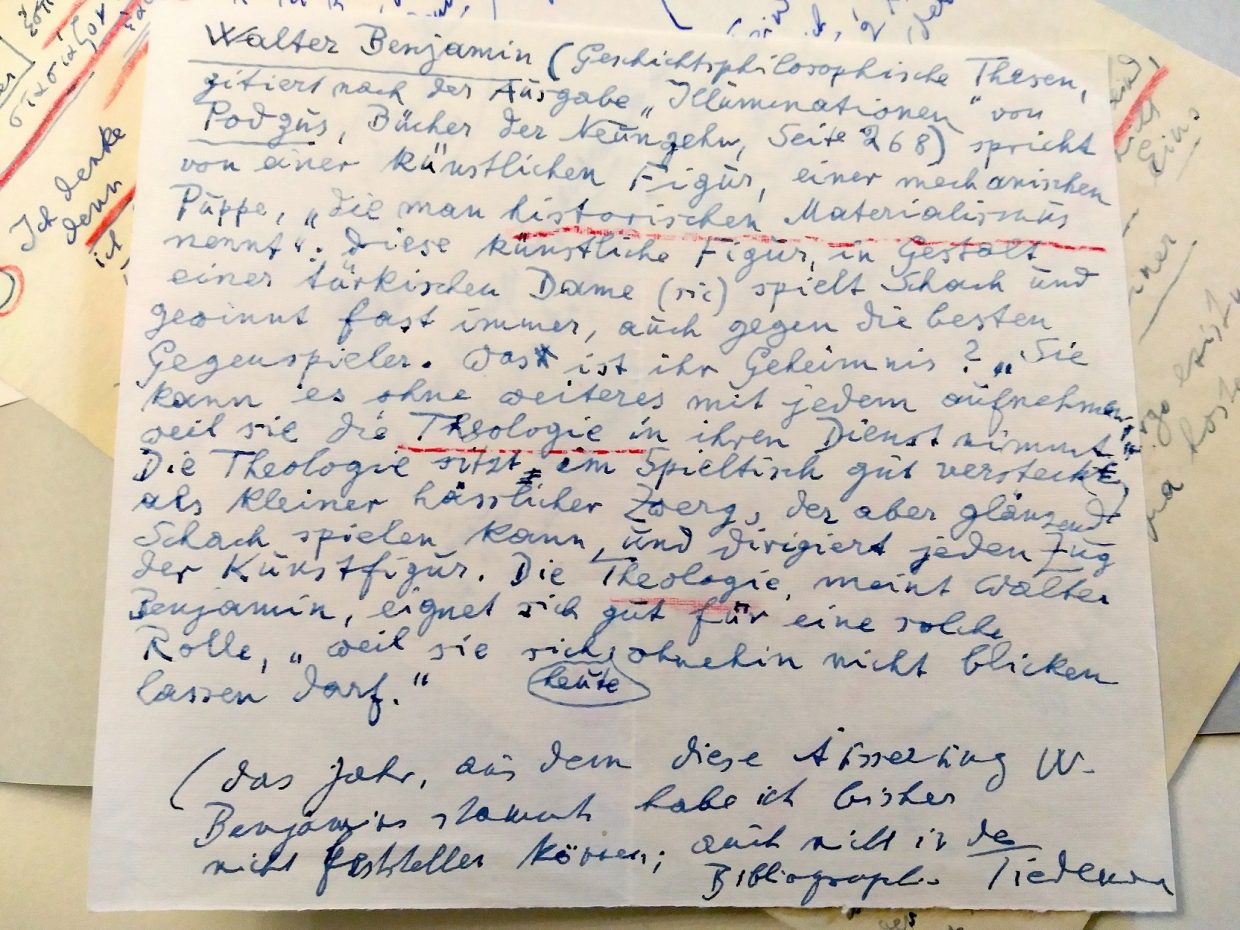 Walter Benjamin (Geschichtsphilosophische Thesen,
zitiert nach der Ausgabe „Illuminationen" von
Podzus, Bücher der Neunzehn, Seite 268) spricht
von einer künstlichen Figur, einer mechanischen
Puppe, „die man historischen Materialismus
nennt". Diese künstliche Figur, in Gestalt
einer türkischen Dame (sic) spielt Schach und
gewinnt fast immer, auch gegen die besten
Gegenspieler. Was ist ihr Geheimnis? „Sie
kann es ohne weiteres mit jedem aufnehmen,
weil sie die Theologie in ihren Dienst nimmt".
Die Theologie sitzt im Spieltisch gut versteckt,
als kleiner hässlicher Zwerg, der aber glänzend
Schach spielen kann, und dirigiert jeden Zug
der Kunstfigur. Die Theologie, meint Walter
Benjamin, eignet sich gut für eine solche
Rolle, „weil sie sich ohnehin nicht blicken
lassen darf." heute
(das Jahr, aus dem diese Äusserung W.
Benjamins stammt habe ich bisher
nicht feststellen können; auch nicht in de
Bibliographie Tiedemann
Ich denke
denn
ich
eins